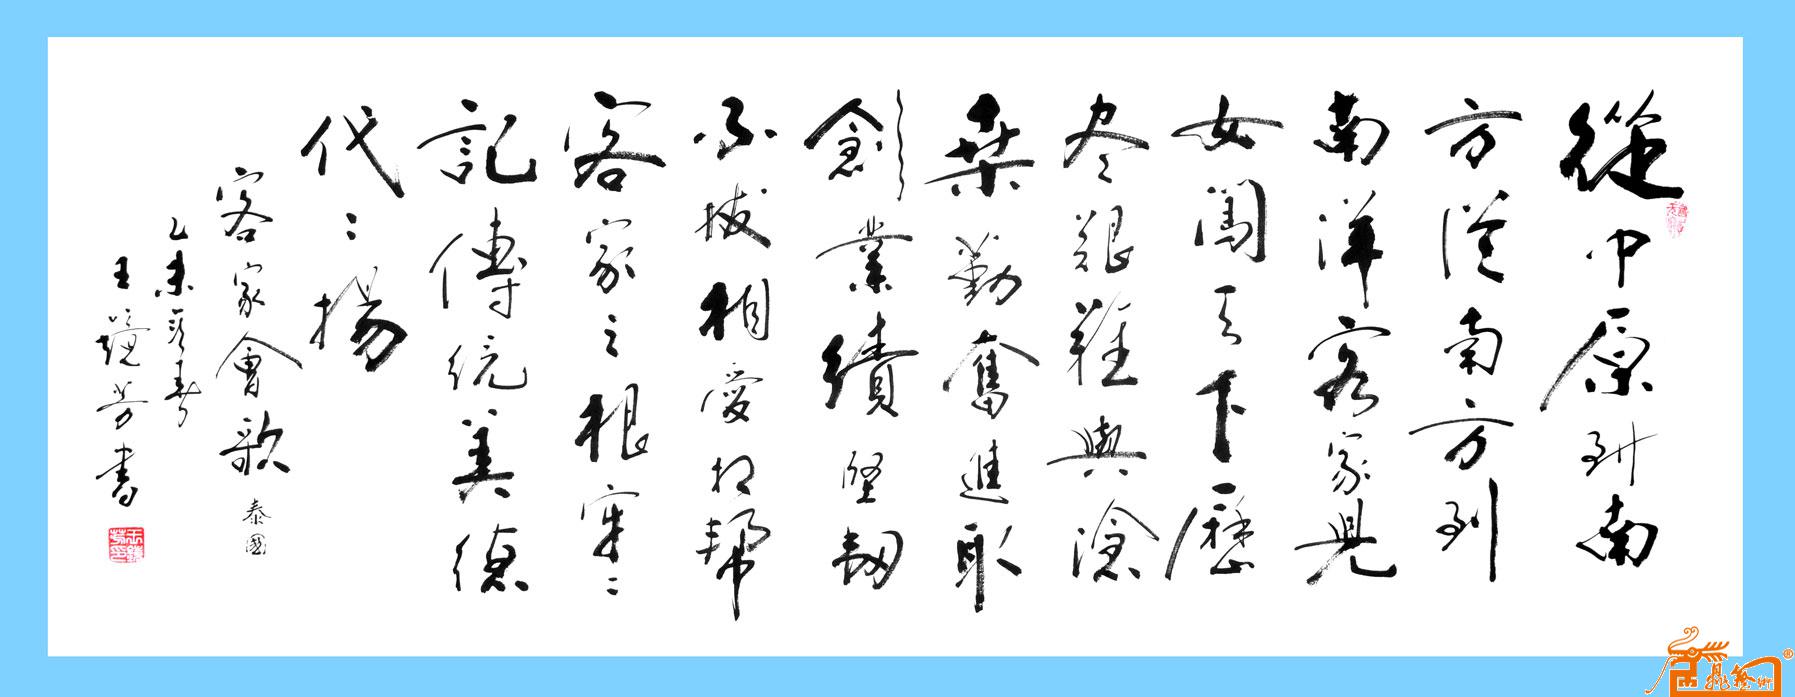 從中原到南
方從南方到
南洋客家兒
女闖天下歷
尽艱難與滄
桑勤奮進取
創業績堅韌
不拔相愛相帮
客家之根牢〻
記傳統美德
代〻揚
客家會歌 泰國
乙未春
王鏡芳書